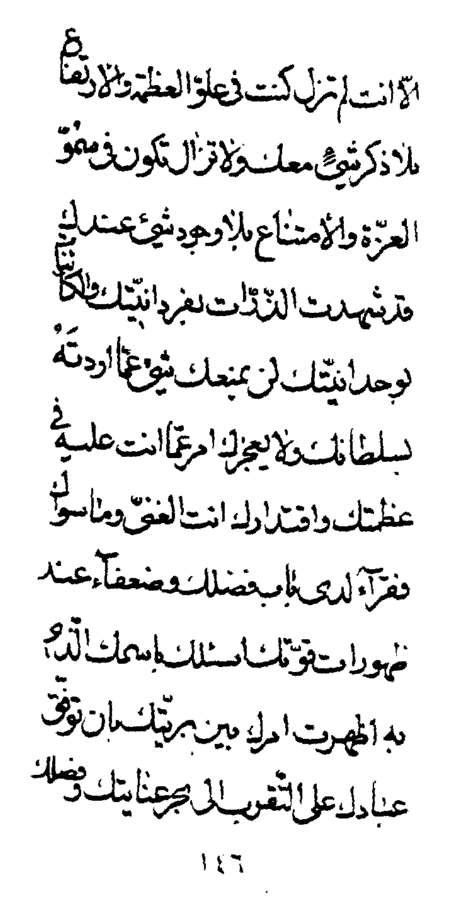 الّا انت لم تزل كنت فی علوّ العظمة والارتفاع
بلا ذكر شیءٍ معك ولا تزال تكون فی سموّ
العزّة والامتناع بلا وجود شیء عندك
قد شهدت الذّرّات بفردانيّتك والكائنات
بوحدانيّتك لن يمنعك شیء عمّا اردتَهُ
بسلطانك ولا يعجزك امر عمّا انت عليه فی
عظمتك واقتدارك انت الغنیّ وما سواك
فقرآء لدى باب فضلك وضعفآء عند
ظهورات قوّتك اسئلك باسمك الّذی
به اظهرت امرك بين بريّتك بان توفّق
عبادك على التّقرب الى بحر عنايتك وفضلك
١٤٦